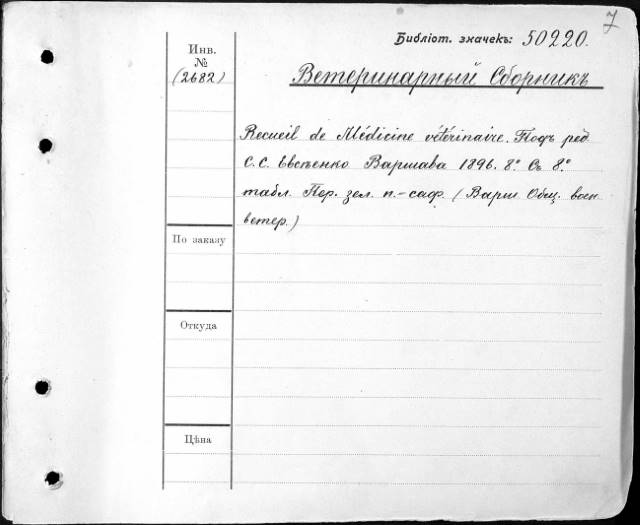 7
Библіот. значекъ: 50220.
Инв.
№
(2682)
Ветеринарный Сборникъ
Recueil de Médicine vétérinaire. Подъ ред
С. С. Евсѣенко Варшава 1896. 8º. Съ 8º.
табл. Пер. зел. п.-саф. (Варш. Общ. воен
ветер.)
По заказу
Откуда
Цѣна